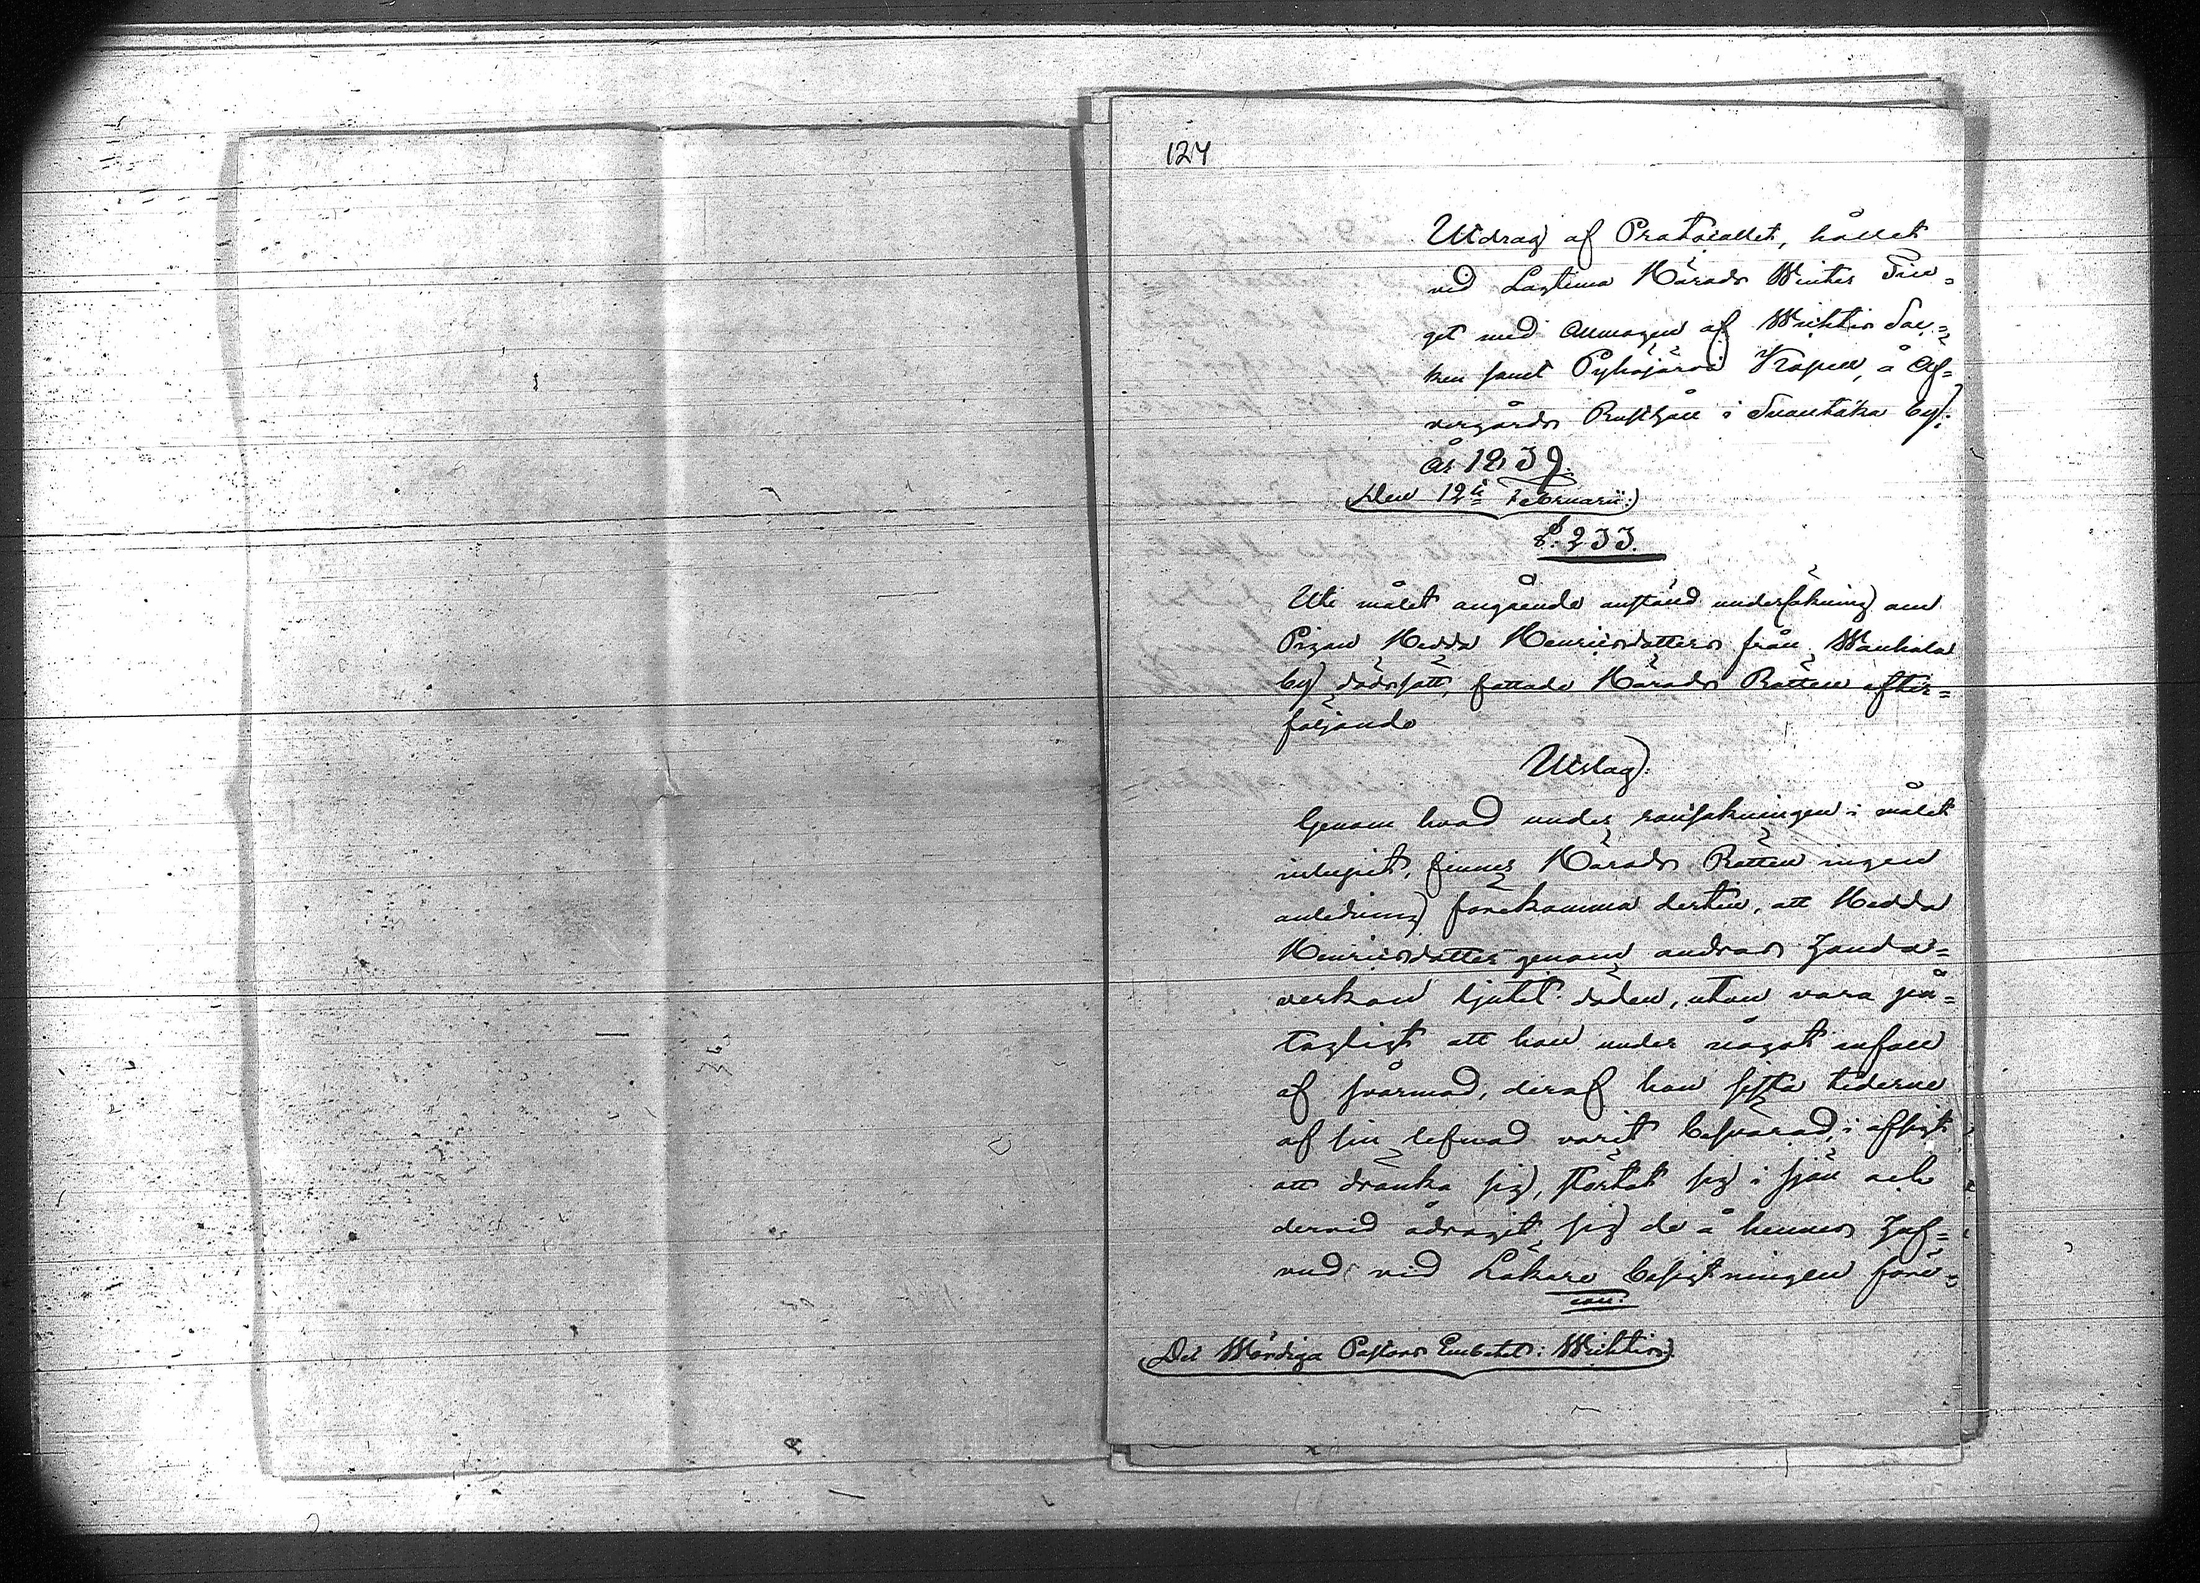 124
Utdrag af Protocollet, hållet
vid Lagtima Härads Winter Tin-
get med Allmogen af Wichtis Soc-
ken samt Pyhäjärvi Kapell, å Öf-
vergårds Rusthåll i Suontaka by;
År 1839.
Den 12te Februarii:
§. 233.
Uti målet angående anstäld undersökning om
Pigan Hedda Henricsdotters från Wanhala
by dödssätt, fattade Härads Rätten efter-
följande
Utslag:
Genom hvad under ransakningen i målet
inlupit, finner Härads Rätten ingen
anledning förekomma dertill, att Hedda
Henricsdotter genom andras handa-
verkan ljutit döden, utan vara på-
tagligt att hon under något anfall
af svårmod, deraf hon sista tiderne
af sin lefnad varit besvärad, i afsigt
att dränka sig, störtat sig i sjön och
dervid ådragit sig de å hennes huf-
vud vid Läkare besigtningen före-
coll.
Det Wördiga Pastors Embetet i Wichtis.